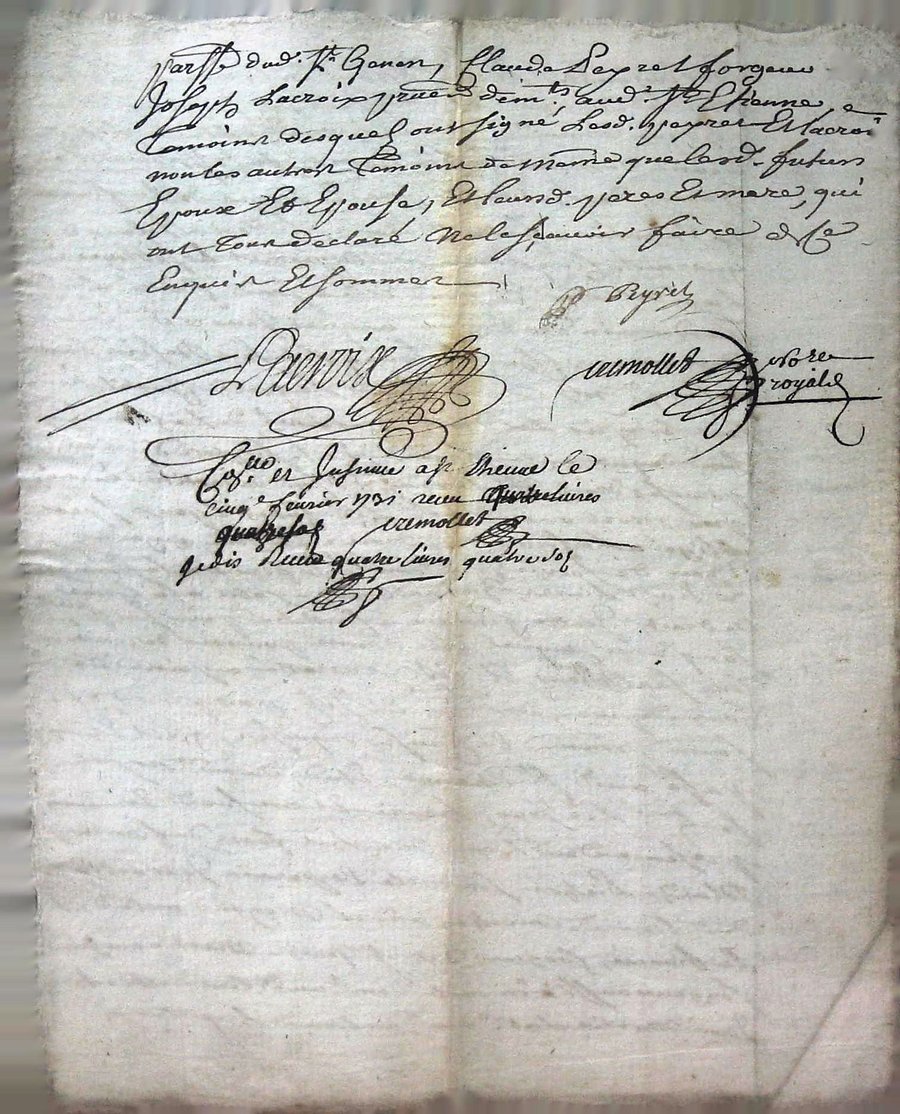 parsse dud. St. Genen, Claude Peyret forgeur
Joseph Lacroix pnt demts. aud. St Etienne, e
Temoins desquels ont signé Lesd. peyret Et lacroi
non les autres Temoins de mesme que lesd. futurs
Epoux Et Epouse, Et leursd. peres Et mere, qui
ont Tous declaré Ne le sçavoir faire de Ce
Enquis Et sommes
Peyret
Lacroix
cremollet nore
royal
Coñlle et Insinué a St Etienne le
cinq.e février 1731 receu quatre livres
quatre sols cremollet
je dis Receu quatre livres quatre sol